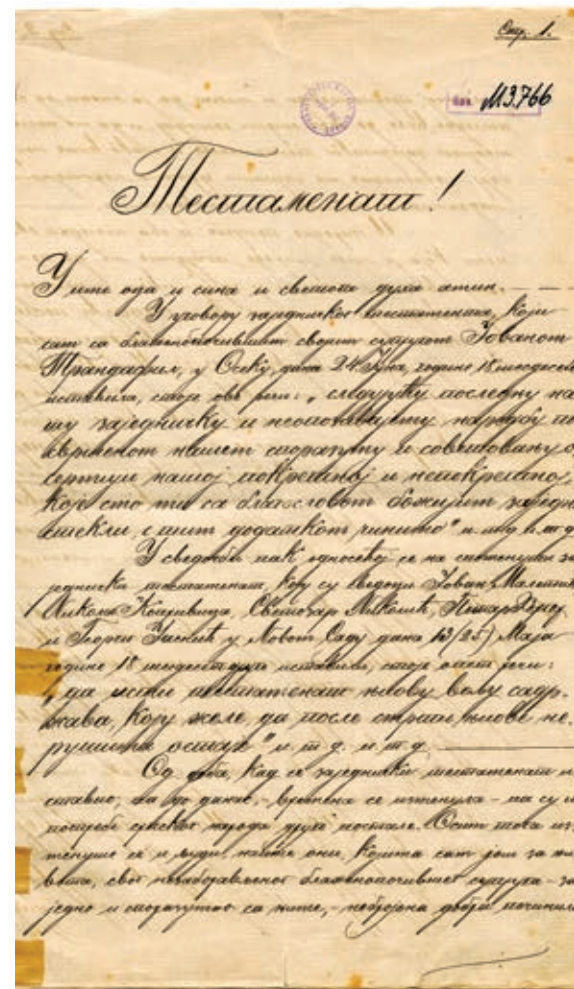 Стр. 1.
М3.766
Тестаменат!
У име оца и сина и светога духа амин.
У уводу заједничког тестамента, који
сам са блаженопочившим својим супругом Јованом
Трандафил, у Осеку, дана 24 Јуна, године 18 шесдесет
оставила, стоје ове речи: „следујућу последну на
шу заједничку и неопозивљиву наредбу по
свршеном нашем споразуму и совјетовању о
сермији нашој покретној и непокретној,
коју смо ми са благословом божијим заједно
стекли, с тим додатком чинимо" и т.д. и т.д.
У сведоби пак односећој се на споменути за
једнички тестаменат, коју су сведоци Јован
Светозар Николић, Петар
и Георги у Новом Саду дана 13/25) Маја
године 18 шесдесет оставили, стоје опет речи:
„да исти тестаменат њиову вољу садр-
жава, коју желе, да после смрти њиове не-
рушима остаје" и т.д. и т.д.
Од доба, кад се заједнички тестаменат са
ставио, па до данас, - времена се изменула - па су и
потребе српског народа друге постале. Осим тога из
менуше се и људи, наиме они, којима сам још за жи
вота, свог незаборављеног блаженопочившег супруга - за
једно и споразумно са њиме, - небројена добра починила